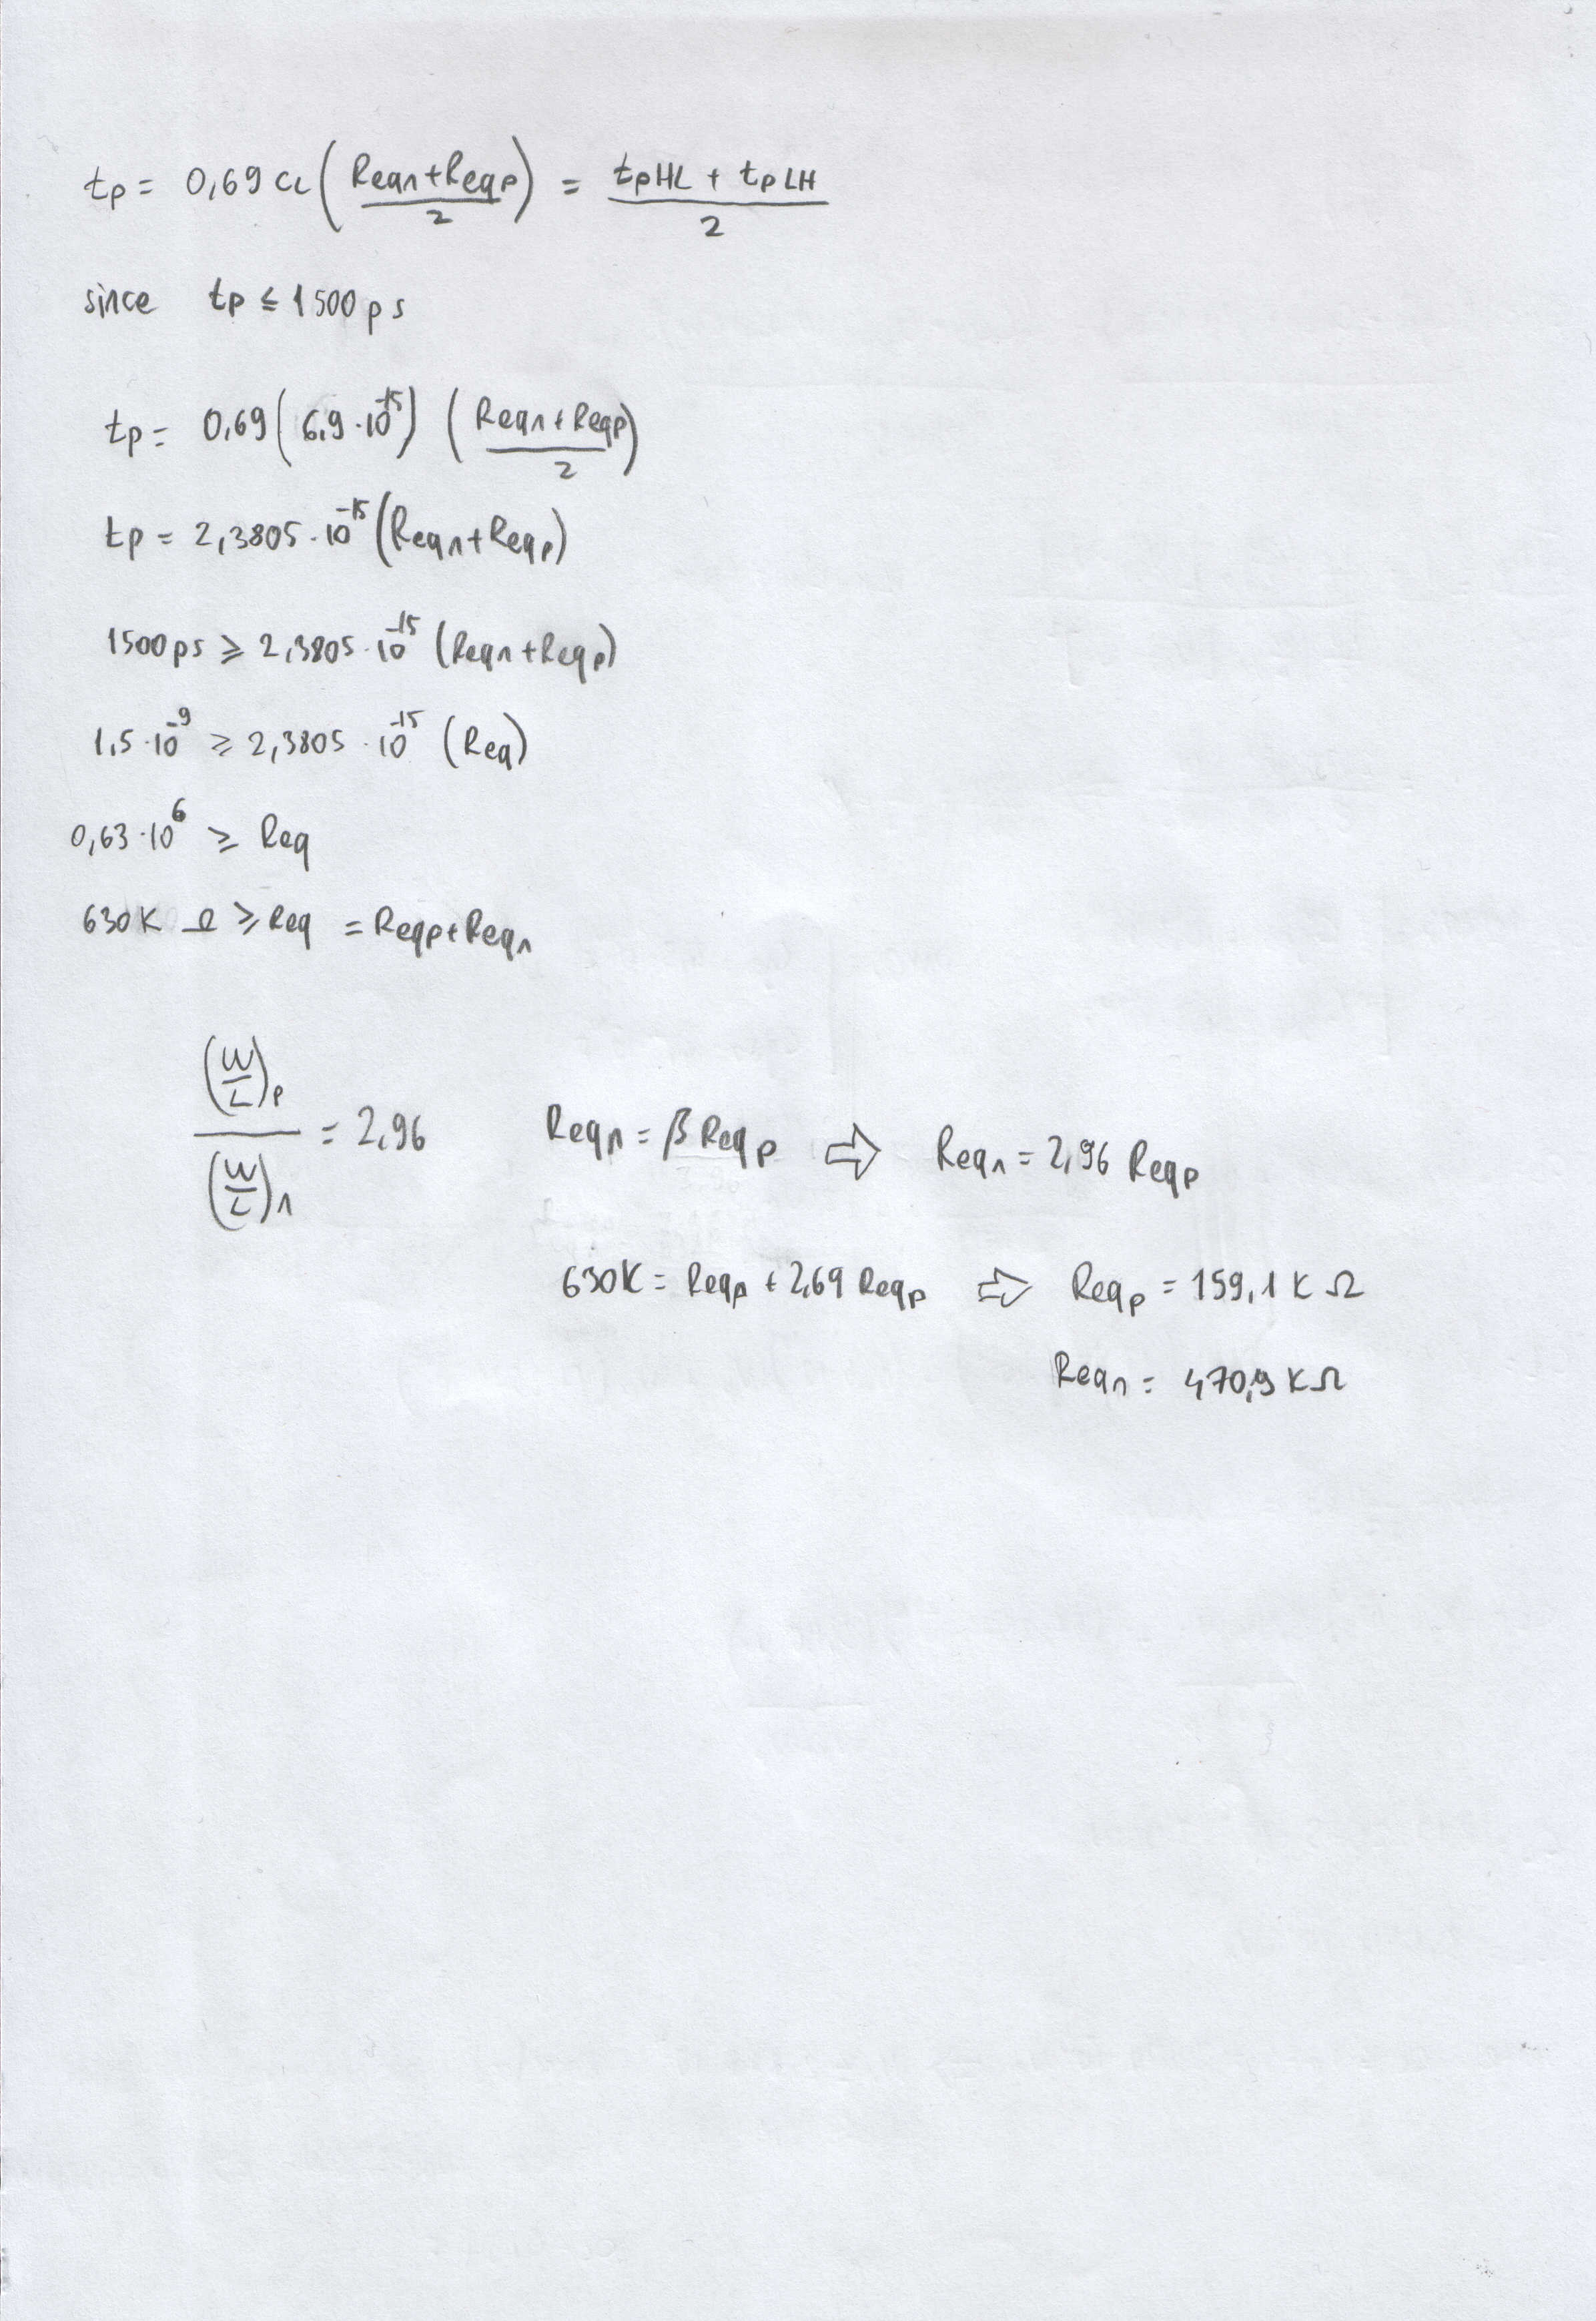 tp = 0,69 CL ( (Reqn + Reqp) / 2 ) = (tpHL + tpLH) / 2
since tp ≤ 1500 ps
tp = 0,69 ( 6,9 · 10^-15 ) ( (Reqn + Reqp) / 2 )
tp = 2,3805 · 10^-15 (Reqn + Reqp)
1500 ps ≥ 2,3805 · 10^-15 (Reqn + Reqp)
1,5 · 10^-9 ≥ 2,3805 · 10^-15 (Req)
0,63 · 10^6 ≥ Req
630K Ω ≥ Req = Reqp + Reqn
(W/L)p / (W/L)n = 2,96 Reqn = β Reqp ⇨ Reqn = 2,96 Reqp
630K = Reqp + 2,69 Reqp ⇨ Reqp = 159,1 K Ω
Reqn = 470,9 K Ω